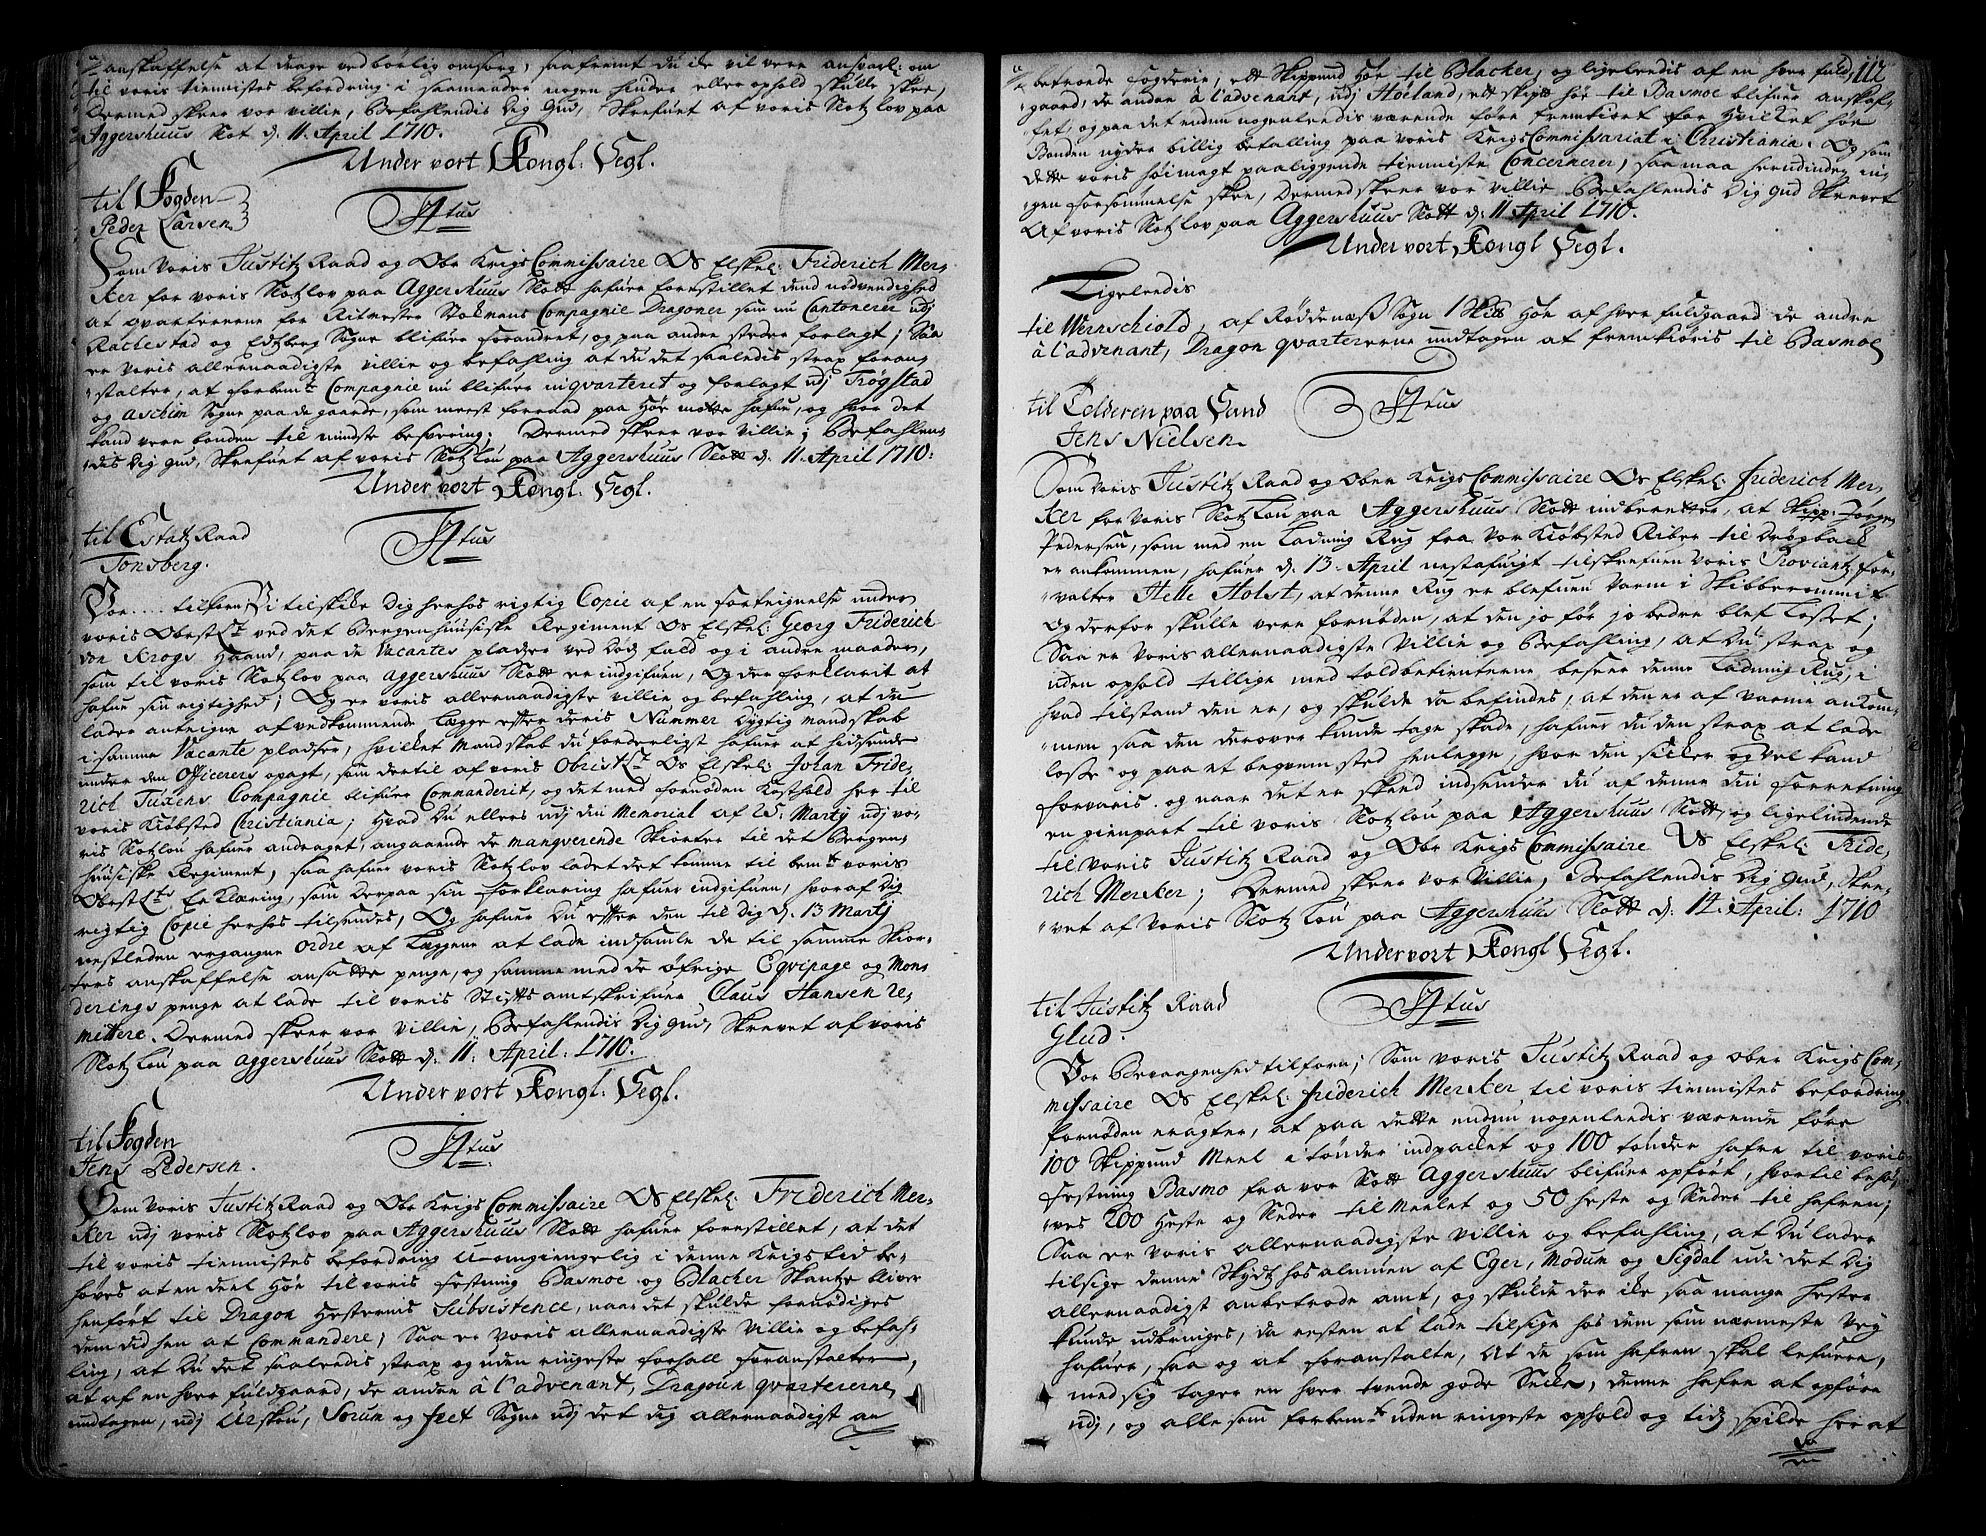 anskaffelse at drage ved børlig omsorg, saafremt du ike vil vere ansvarl: om
til voris tiennistes befordring i saamaader nogen hinder eller ophold skulle skee,
Dermed skeer vor villie, Befahlendis Dig Gud, Skrefuet af voris Slotz lov paa
Aggershuus Slot d: 11. April 1710.
Under vort Kongl: Segl.
til Fogden
Peder Larsen
Ftus
Som Voris Justitz Raad og Obr Krigs Commissaire Os Elskel: Friderich Mer-
ker for voris Slotzlov paa Aggershuus Slott hafuer forestillet dend nødvendighed
at qvarteererne for Ritmester Stokmans Compagnie Dragoner som nu Cantonerer udj
Rachestad og Edtzberg Sogne blifuer forandret, og paa andre steder forlagt; Saa
er voris allernaadigste villie og befahling at du det saaledis strax foran-
stalter, at forbemte Compagnie nu blifuer inqvarteret og forlagt udj Trøgstad
og Aschim Sogne paa de gaarde, som meest forraad paa Høe motte hafue, og hvor det
kand vere bonden til mindste besvering; Dermed skeer vor villie; Befahlen-
dis Dig Gud, Skrefuet af voris Slotz lou paa Aggershuus Slott d: 11. April 1710:
Under vort Kongl: Segl.
til Estatz Raad
Tonsberg.
Ftus
Vor ... tilforn; Vi tilskike Dig herhos rigtig Copie af en fortegnelse under
voris Obest Lt ved det Bergenhuusiske Regiment Os Elskel: Georg Friderich
von Krogs Haand, paa de Vacantes pladser ved Død, fald og i andre maader,
som til voris Slotzlov paa Aggershuus Slott er indgifuen, Og der forklarit at
hafue sin rigtighed; Og er voris allernaadigste villie og befahling, at du
lader antegne af vedkommende Lægge efter deris Nummer dygtig mandskab
i samme Vacante pladser, hvilket Mandskab du forderligst hafuer at hidsende
under den Officerers opagt, som dertil af voris Obrist Lt Os Elskel: Johan Fride-
rich Tuxens Compagnie blifuer Commanderit, og det med fornøden Kosthold her til
voris Kiøbsted Christiania; Hvad Du ellers udj din Memorial af 25: Marty udj vo-
ris Slotzlou hafuer andraget, angaaende de manqverende Skiorter til det Bergen-
huusiske Regiment, saa hafuer voris Slotzlov ladet det komme til bemte voris
Obest Lts Erklæring, som derpaa sin forklaring hafuer indgifuen, hvoraf dig
rigtig Copie herhos tilsendes, Og hafuer Du efter den til Dig d: 13 Marty
nestleden ergangne Ordre af Læggene at lade indsamle de til samme Skior-
ters anskaffelse ansatte penge, og samme med de øfrige Eqvipage og Mon-
derings penge at lade til voris Stiftsamtskrifuer Claus Hansen re-
mittere. Dermed skeer vor villie, Befahlendis Dig Gud, Skrevet af voris
Slotz lou paa Aggershuus Slott d: 11. April: 1710.
Under vort Kongl: Segl.
til Fogden
Jens Pedersen.
Ftus
Som Voris Justitz Raad og Obr Krigs Commissaire Os Elskel: Friderich Mer-
ker udj voris Slotzlov paa Aggershuus Slott hafuer forestillet, at det
til voris tiennistes befordring U-omgiengelig i denne Krigstid be-
høves at en deel Høe til voris festning Basmoe og Blacher Skantze bliver
henført til Dragon Hesternis Subsistence, naar det skulde fornødiges
dem did hen at Commandere; Saa er Voris allernaadigste Villie og befah-
ling, at Du det saaledis strax og uden ringeste forhall foranstalter,
at af en hver fuldgaard, de anden â l'advenant, Dragoun qvartererne
undtagen, udj Urskou, Sørum og Fet Sogne udj det dig allernaadigst an
112
betroede fogderie, ett Skippund Høe til Blacher, og ligeleedis af en hver fuld-
gaard, de anden â l'advenant, udj Høeland, ett skip# høe til Basmoe blifuer anskaf-
fet, og paa det endnu nogenleedis værende føre fremkiørt for hvilket høe
Bonden nyder billig betalling paa voris Krigs Commissariat i Christiania. Og som
dette voris høimagt paaliggende tienniste Concernerer, saa maa herudinden in-
gen forsømmelse skee, Dermed skeer vor villie Befahlendis Dig Gud Skrevet
Af voris Slotz lov paa Aggershuus Slott d: 11 April 1710.
Under vort Kongl Segl.
Ligeleedis
til Wernschiold, af Røddenæss Sogn 1 Skip# Høe af hver fuldgaard de andre
â l'advenant, Dragon qvartererne undtagen at fremkiøris til Basmoe
til Tolderen paa Sand
Jens Nielsen.
Ftus
Som Voris Justitz Raad og Ober Krigs Commissaire Os Elskel: Friderich Mer-
ker for Voris Slotz lou paa Aggershuus Slott indberetter, at Skipp: Jørgen
Pedersen, som med en Ladning Rug fra vor Kiøbsted Riber til Drøgbach
er ankommen, hafuer d: 13. April nestafuigt tilskrefuen voris Proviantz for-
valter Helle Holst, at denne Rug er blefuen varm i Skibberommit
Og derfor skulle vere fornøden, at den jo før jo bedre blef Losset;
Saa er Voris allernaadigste Villie og Befahling, at Du strax og
uden ophold tillige med toldbetienterne beseer denne Ladning Rug, i
hvad tilstand den er, og skulde da befindes, at den er af varme ankom-
men saa den derover kunde tage skade, hafuer du den strax at lade
losse og paa et beqvem sted henlegge, hvor den siker og vel kand
forvaris. og naar det er skeed indsender du af denne din forretning
en gienpart til voris Slotzlou paa Aggershuus Slott, og ligelindende
til voris Justitz Raad og Obr Krigs Commissaire Os Elskel: Fride-
rich Merker; Dermed skeer vor Villie, Befahlendis Dig Gud, Skre-
vet af Voris Slotz lou paa Aggershuus Slott d: 14. April: 1710
Under vort Kongl Segl.
til Justitz Raad
Glud.
Ftus
Vor Bevaagenhed tilforn; Som voris Justitz Raad og ober Krigs Com-
missaire Os Elskel: Friderich Merker til voris tiennistes befordring
fornøden eragter, at paa dette endnu nogenleedis værende føre
100 Skippund Meel i tønder indpacket og 100 tønder hafre til voris
Festning Basmo fra vor Slott Aggershuus blifuer opført, hvortil behø-
ves 200 Heste og Sleder til Meelet og 50 heste og Sleder til hafren;
Saa er Voris allernaadigste villie og befahling, at Du lader
tilsige denne Skydtz hos almuen af Eger, Modum og Sigdal udi det Dig
allernaadigst anbetrode amt, og skulde der ike saa mange hester
kunde udbringes, da resten at lade tilsige hos dem som nærmeste Veg
hafuer, saa og at foranstalte, At de som hafren skal lefuere,
med sig tager en hver tvende gode Secke, denne hafre at opføre
udj, og alle som forbemt uden ringeste ophold og tidz spilde her at